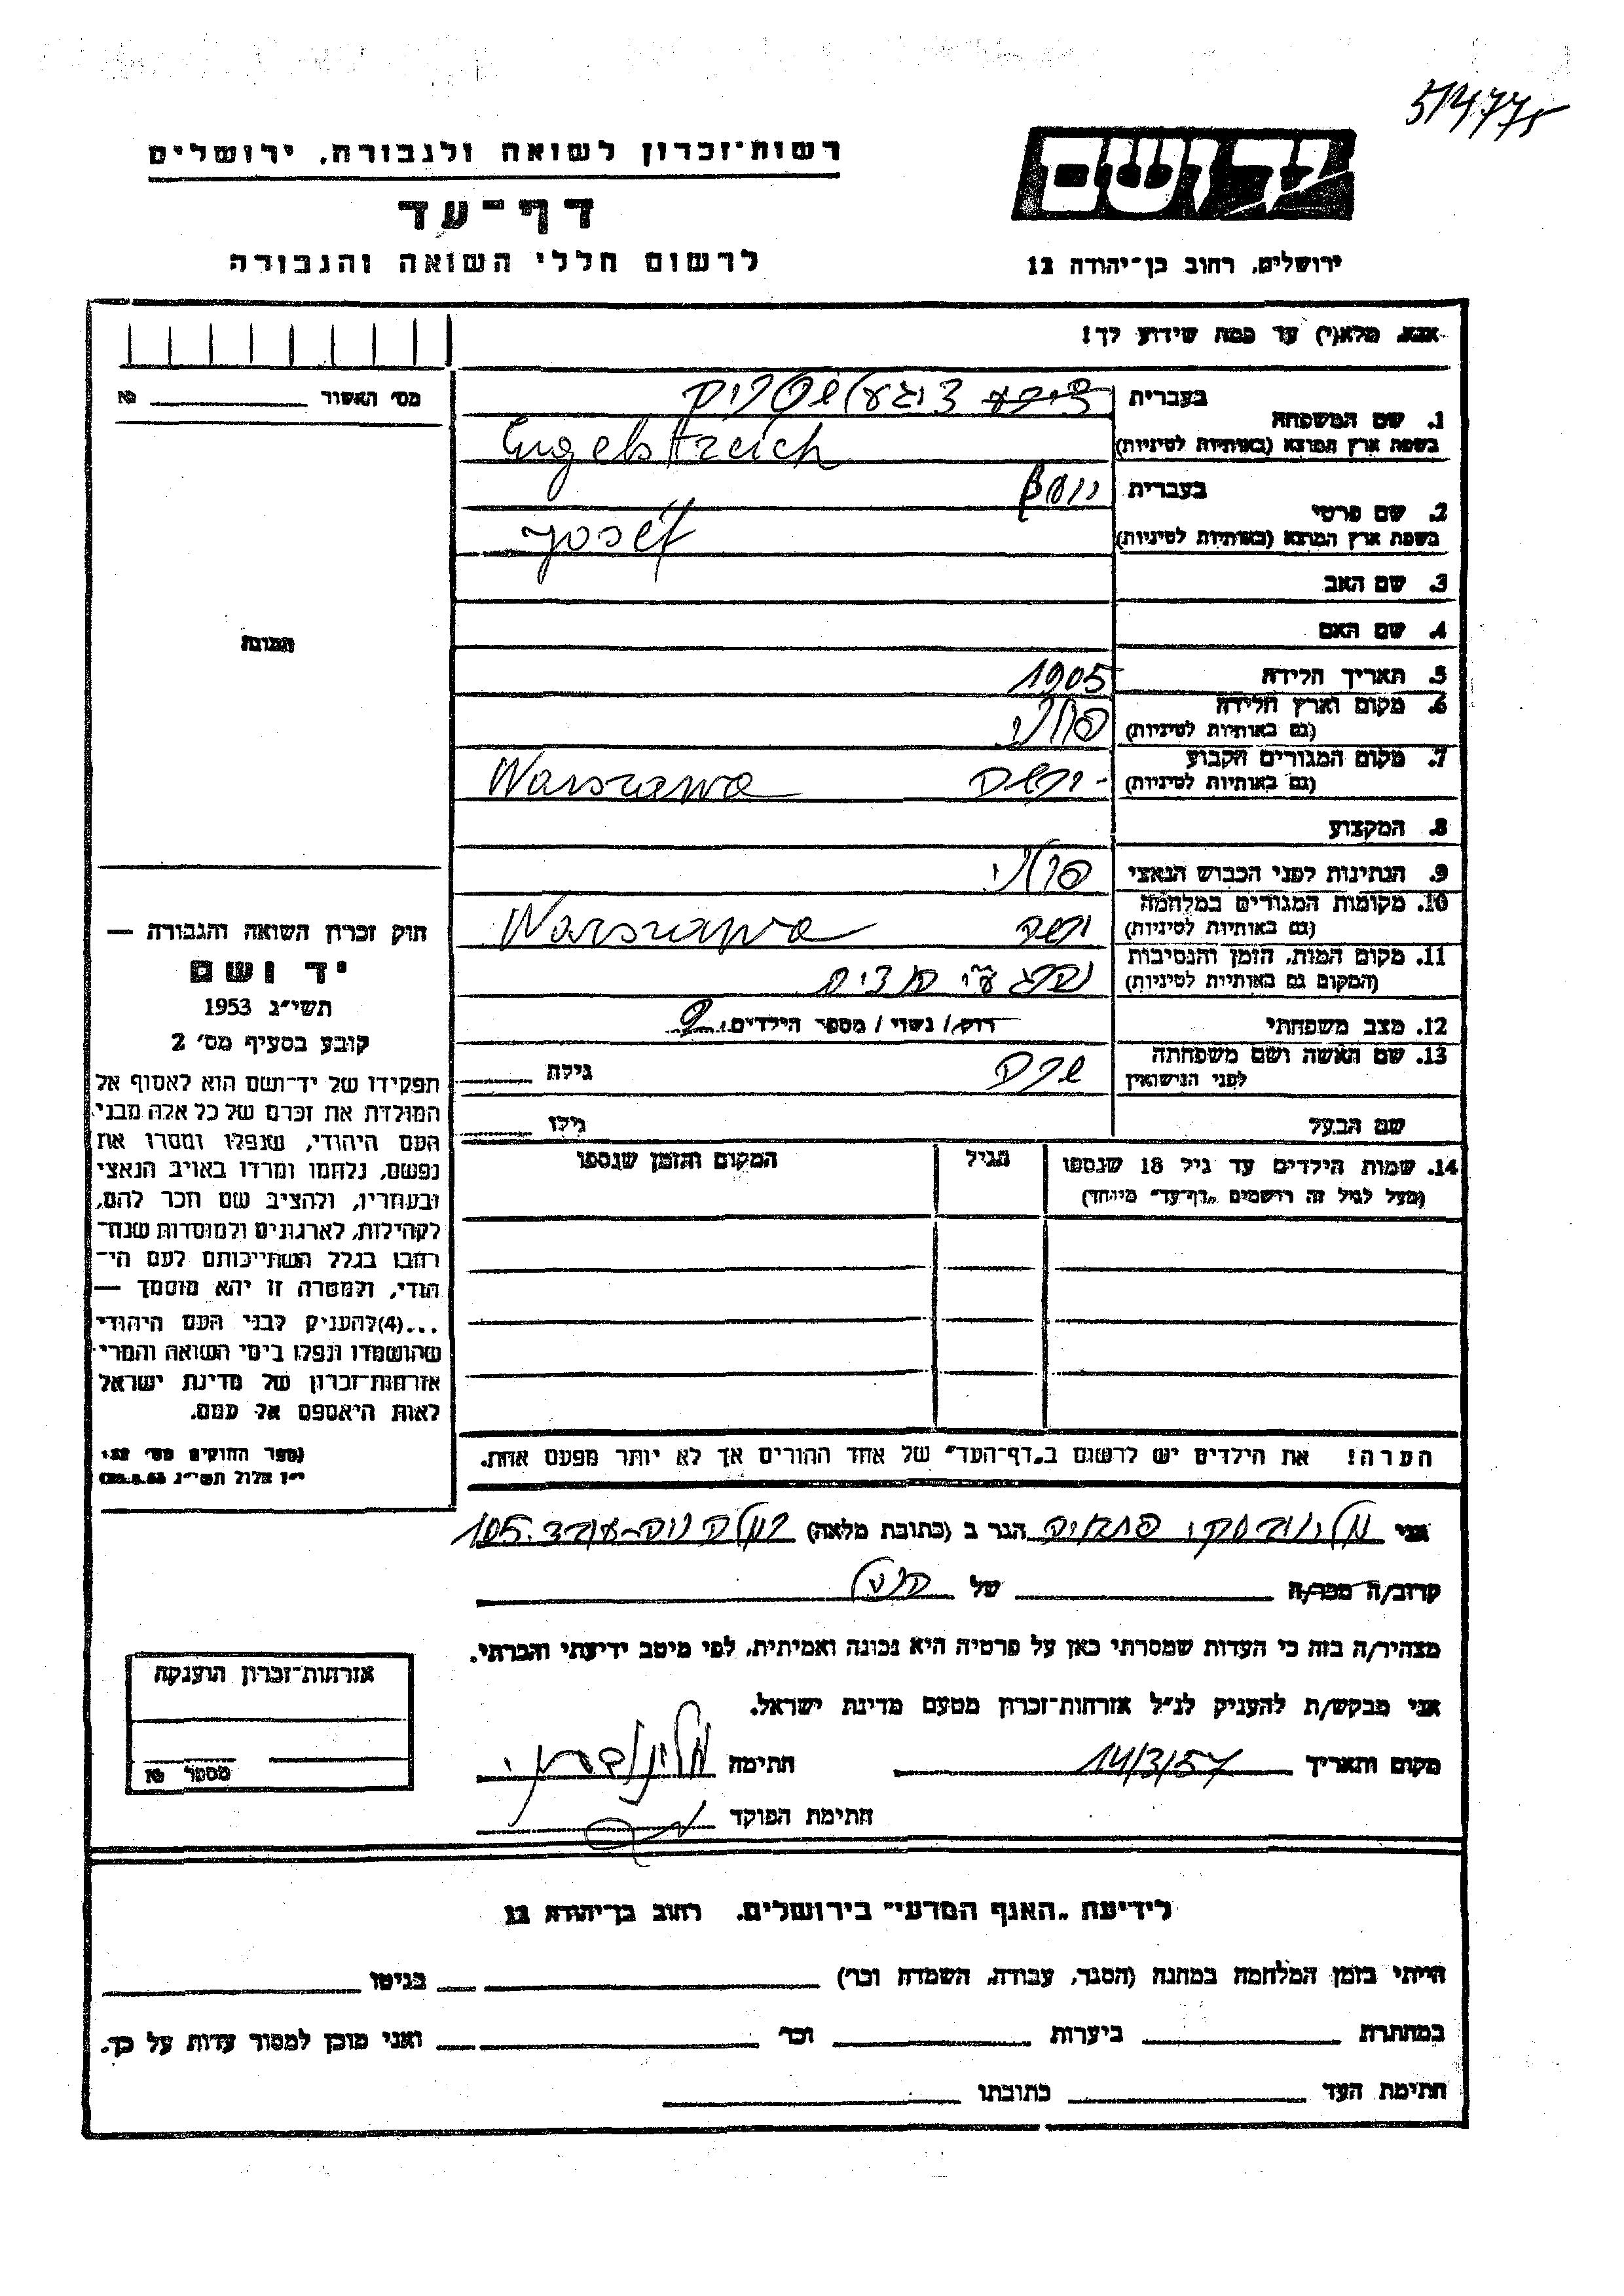 514775
רשות־זכרון לשואה ולגבורה, ירושלים
יד ושם
דף־עד
לרשום חללי השואה והגבורה
ירושלים, רחוב בן־יהודה 12
אנא, מלא(י) עד כמה שידוע לך!
מס׳ האשור
1. שם המשפחה
בעברית
בשפת ארץ המוצא (באותיות לטיניות)
Engelstreich
2. שם פרטי
בעברית יוסף
בשפת ארץ המוצא (באותיות לטיניות)
Josef
3. שם האב
4. שם האם
התמונה
5. תאריך הלידה 1905
6. מקום וארץ הלידה
(גם באותיות לטיניות)
פולני
7. מקום המגורים הקבוע
(גם באותיות לטיניות)
ורשה Warszawa
8. המקצוע
9. הנתינות לפני הכבוש הנאצי פולני
10. מקומות המגורים במלחמה
(גם באותיות לטיניות)
ורשה Warszawa
11. מקום המות, הזמן והנסיבות
(המקום גם באותיות לטיניות)
נהרג ע״י נאצים
12. מצב משפחתי רווק / נשוי / מספר הילדים 2
13. שם האשה ושם משפחתה
לפני הנישואין
שרה גילה
שם הבעל גילו
14. שמות הילדים עד גיל 18 שנספו הגיל המקום והזמן שנספו
(מעל לגיל זה רושמים „דף־עד״ מיוחד)
חוק זכרון השואה והגבורה —
יד ושם
תשי״ג 1953
קובע בסעיף מס׳ 2
תפקידו של יד־ושם הוא לאסוף אל
המולדת את זכרם של כל אלה מבני
העם היהודי, שנפלו ומסרו את
נפשם, נלחמו ומרדו באויב הנאצי
ובעוזריו, ולהציב שם וזכר להם,
לקהילות, לארגונים ולמוסדות שנח־
רבו בגלל השתייכותם לעם הי־
הודי, ולמטרה זו יהא מוסמך —
...(4)להעניק לבני העם היהודי
שהושמדו ונפלו בימי השואה והמרי
אזרחות־זכרון של מדינת ישראל
לאות היאספם אל עמם.
(ספר החוקים מס׳ 132
י״ז אלול תשי״ג 28.8.53)
הערה! את הילדים יש לרשום ב„דף־העד״ של אחד ההורים אך לא יותר מפעם אחת.
אני הגר ב (כתובת מלאה) 105
קרוב/ה מכר/ה של
מצהיר/ה בזה כי העדות שמסרתי כאן על פרטיה היא נכונה ואמיתית, לפי מיטב ידיעתי והכרתי.
אני מבקש/ת להעניק לנ״ל אזרחות־זכרון מטעם מדינת ישראל.
מקום ותאריך 14/3/57 חתימה
חתימת הפוקד
אזרחות־זכרון הוענקה
מספר
לידיעת „האגף המדעי״ בירושלים, רחוב בן־יהודה 12
הייתי בזמן המלחמה במחנה (הסגר, עבודה, השמדה וכו׳) בגיטו
במחתרת ביערות וכו׳ ואני מוכן למסור עדות על כך.
חתימת העד כתובתו